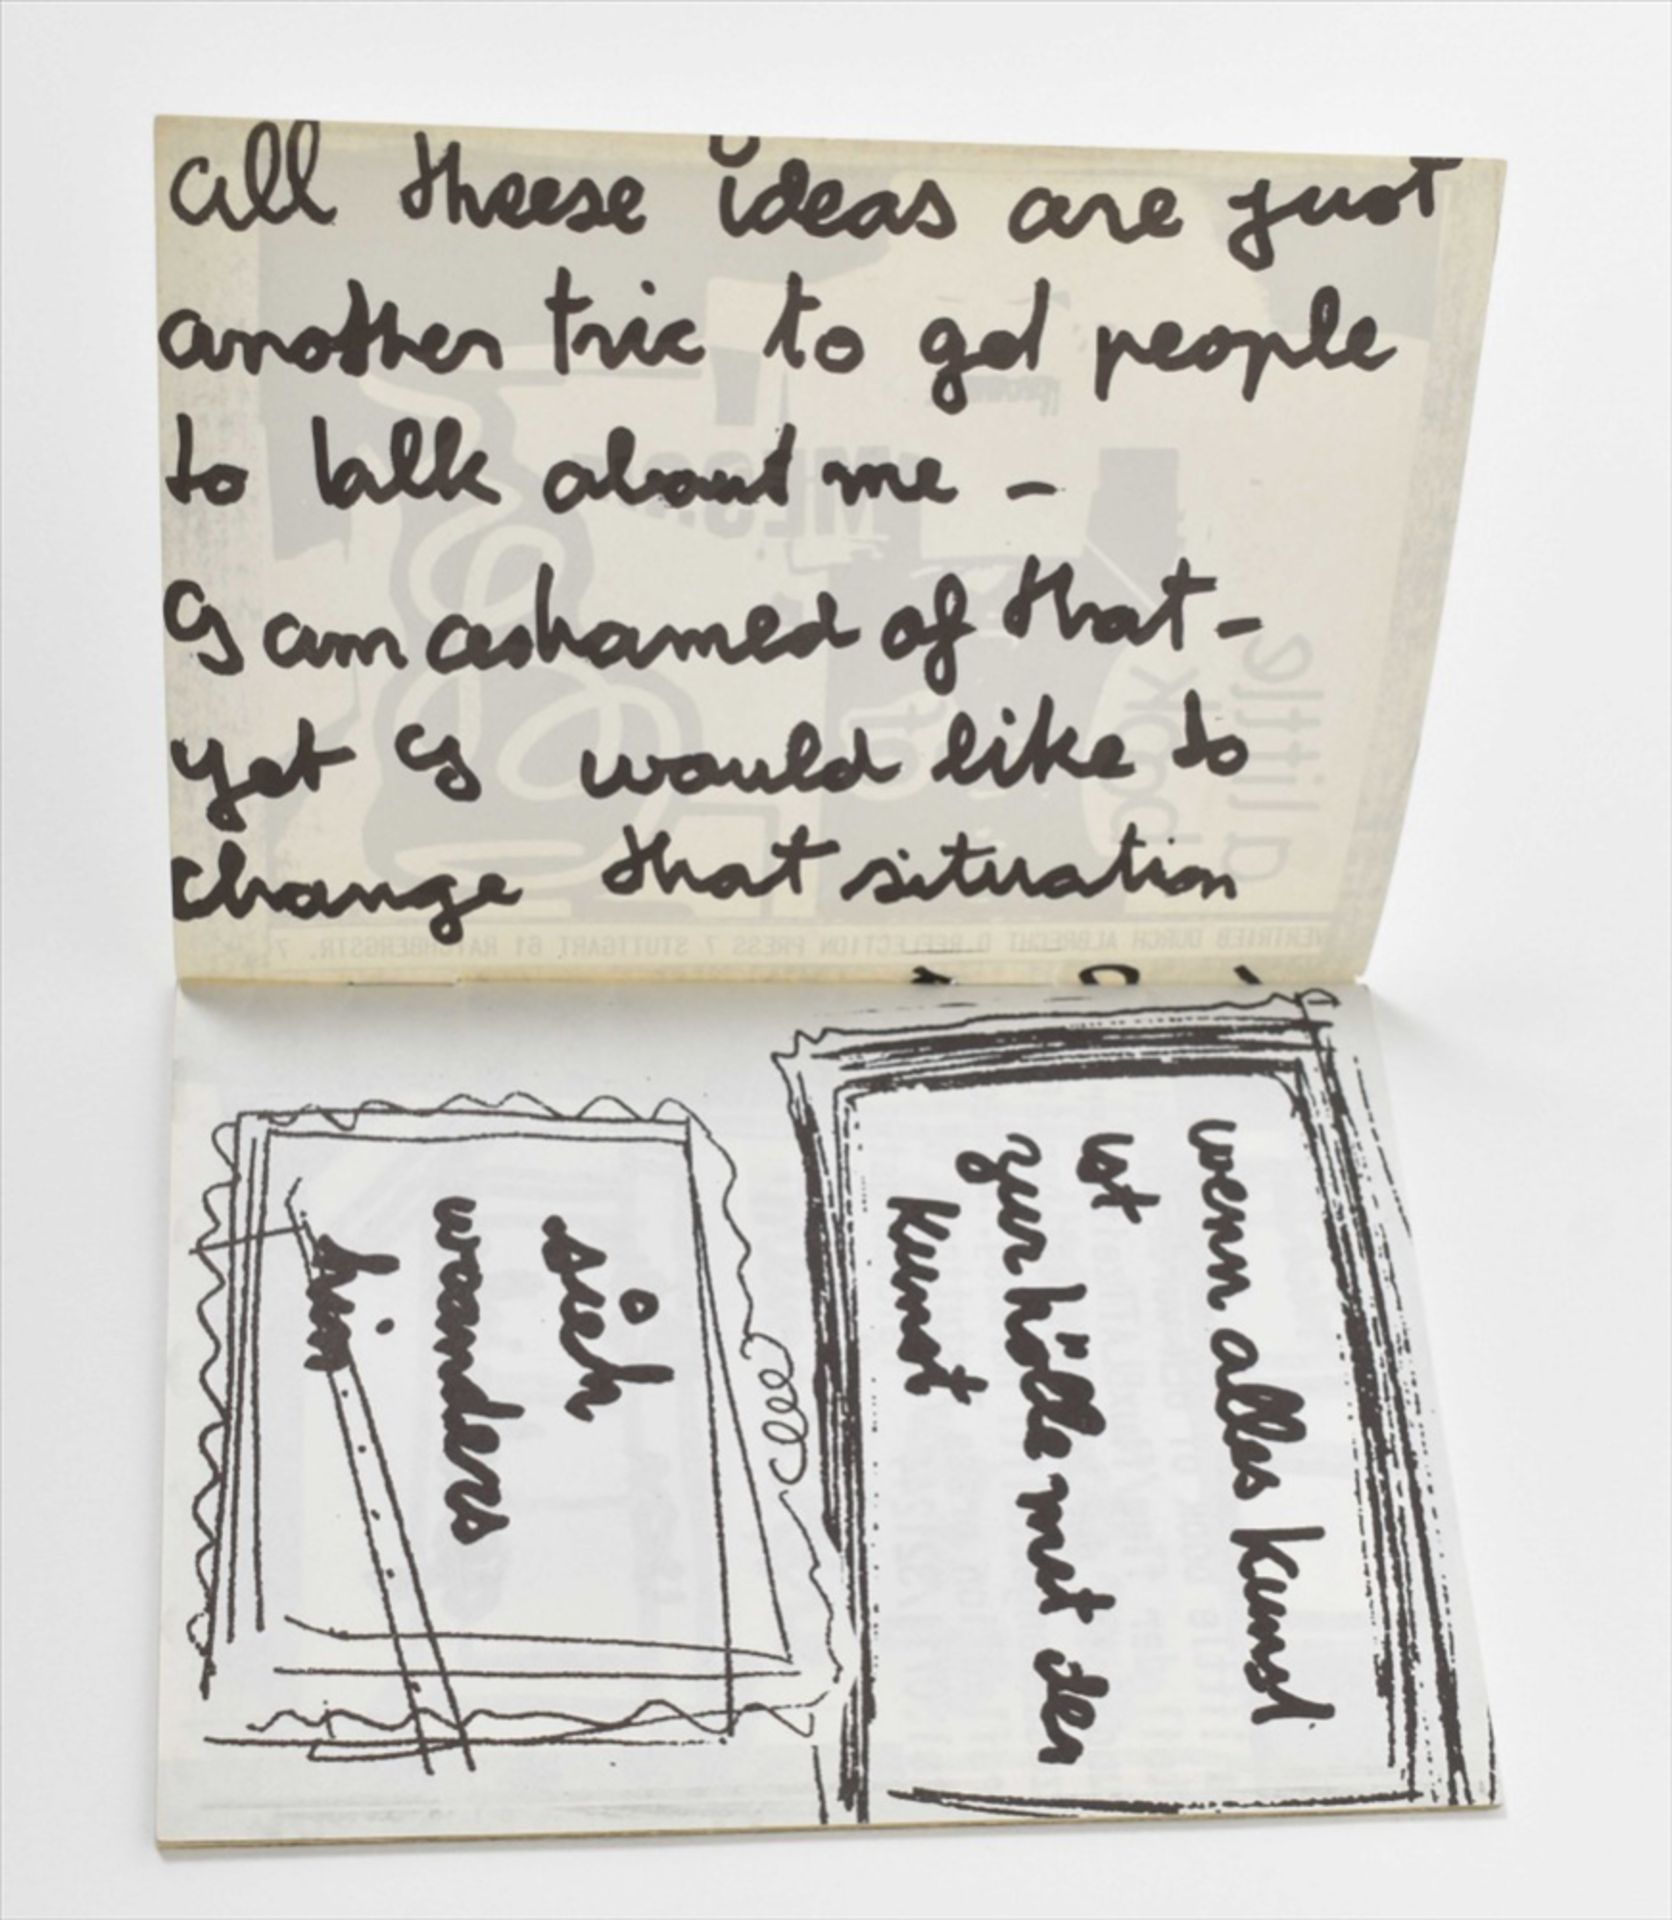 all theese ideas are just
another tric to get people
to talk about me –
I am ashamed of that –
yet I would like to
change that situation
VERTRIEB DURCH ALBRECHT D REFLECTION PRESS 7 STUTTGART 61 RATHSBERGSTR. 7
a little
book
wenn alles kunst
ist
zur hölle mit der
kunst
sieh
wo anders
hin